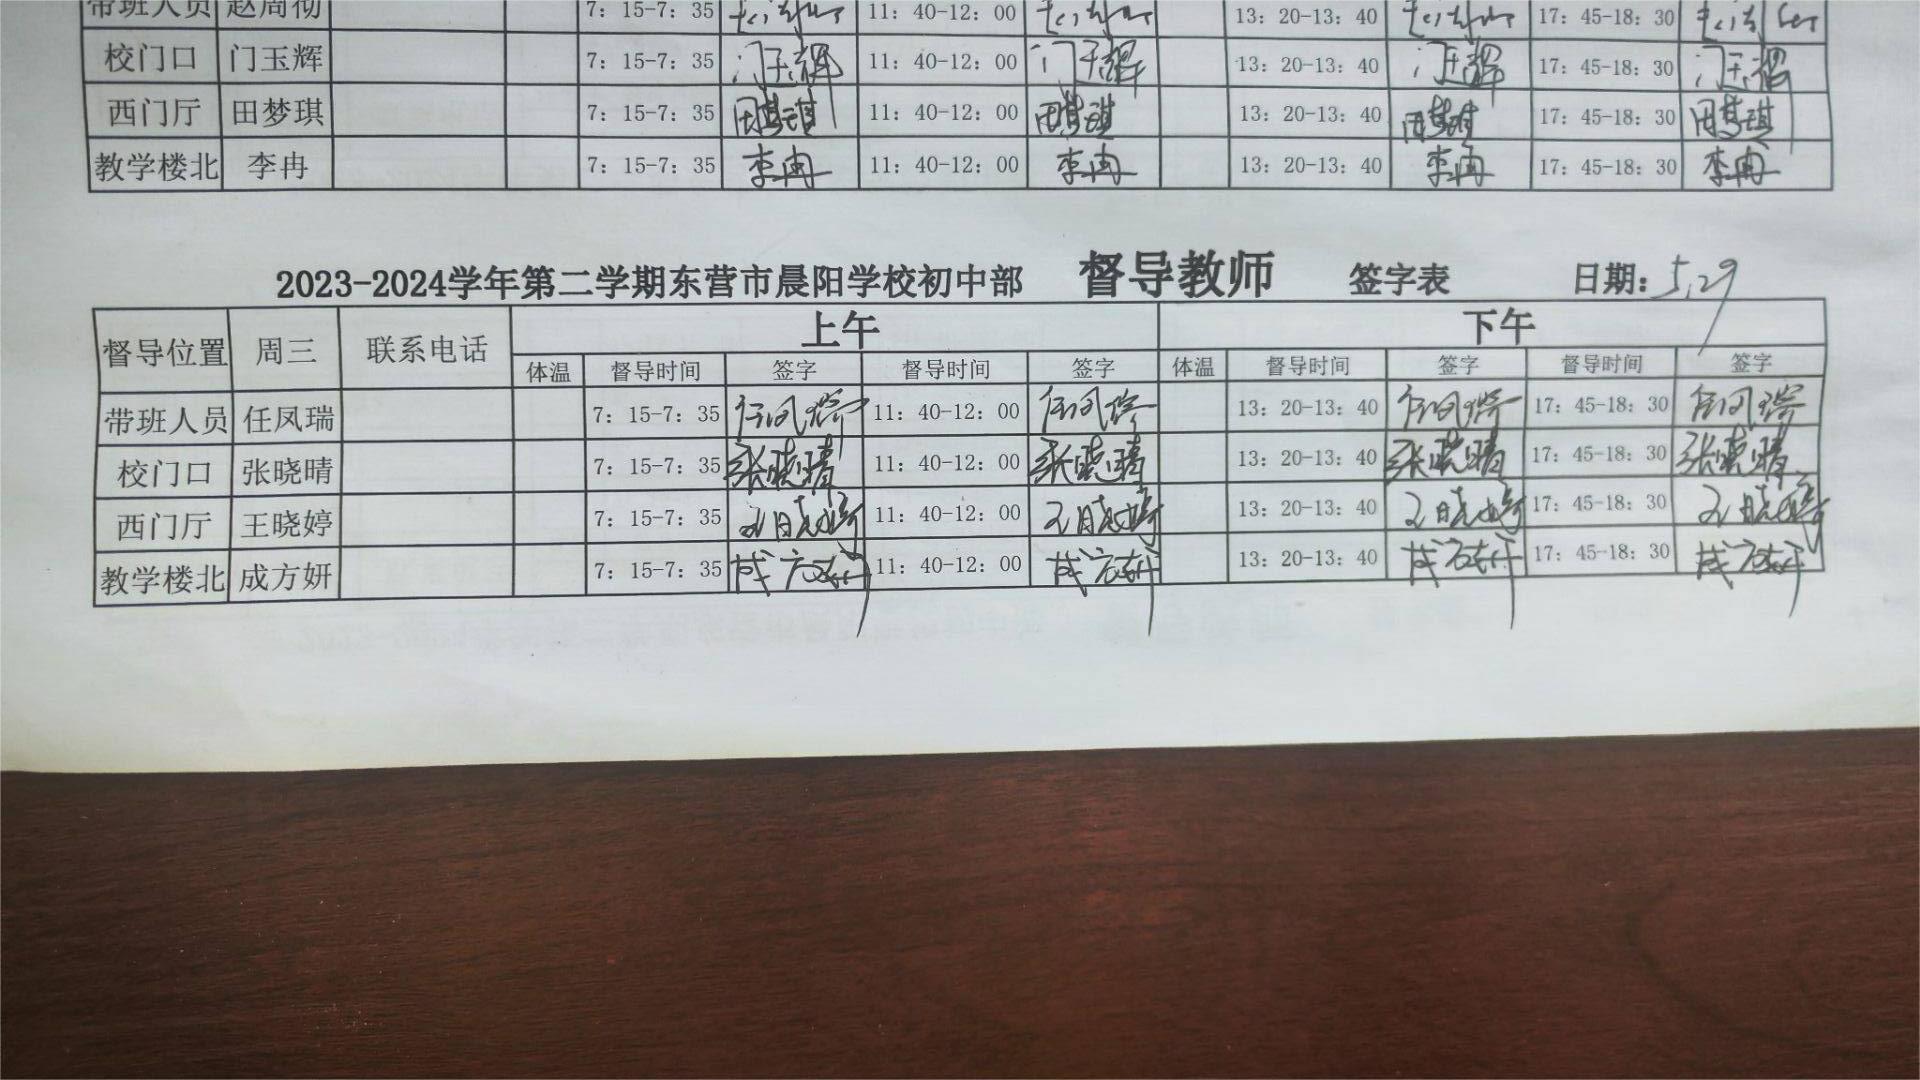 带班人员 赵周彻 7：15-7：35 11：40-12：00 13：20-13：40 17：45-18：30
校门口 门玉辉 7：15-7：35 门玉辉 11：40-12：00 门玉辉 13：20-13：40 门玉辉 17：45-18：30 门玉辉
西门厅 田梦琪 7：15-7：35 田梦琪 11：40-12：00 田梦琪 13：20-13：40 田梦琪 17：45-18：30 田梦琪
教学楼北 李冉 7：15-7：35 李冉 11：40-12：00 李冉 13：20-13：40 李冉 17：45-18：30 李冉
2023-2024学年第二学期东营市晨阳学校初中部 督导教师 签字表 日期：5.29
督导位置 周三 联系电话 上午 下午
体温 督导时间 签字 督导时间 签字 体温 督导时间 签字 督导时间 签字
带班人员 任凤瑞 7：15-7：35 任凤瑞 11：40-12：00 任凤瑞 13：20-13：40 任凤瑞 17：45-18：30 任凤瑞
校门口 张晓晴 7：15-7：35 张晓晴 11：40-12：00 张晓晴 13：20-13：40 张晓晴 17：45-18：30 张晓晴
西门厅 王晓婷 7：15-7：35 王晓婷 11：40-12：00 王晓婷 13：20-13：40 王晓婷 17：45-18：30 王晓婷
教学楼北 成方妍 7：15-7：35 成方妍 11：40-12：00 成方妍 13：20-13：40 成方妍 17：45-18：30 成方妍